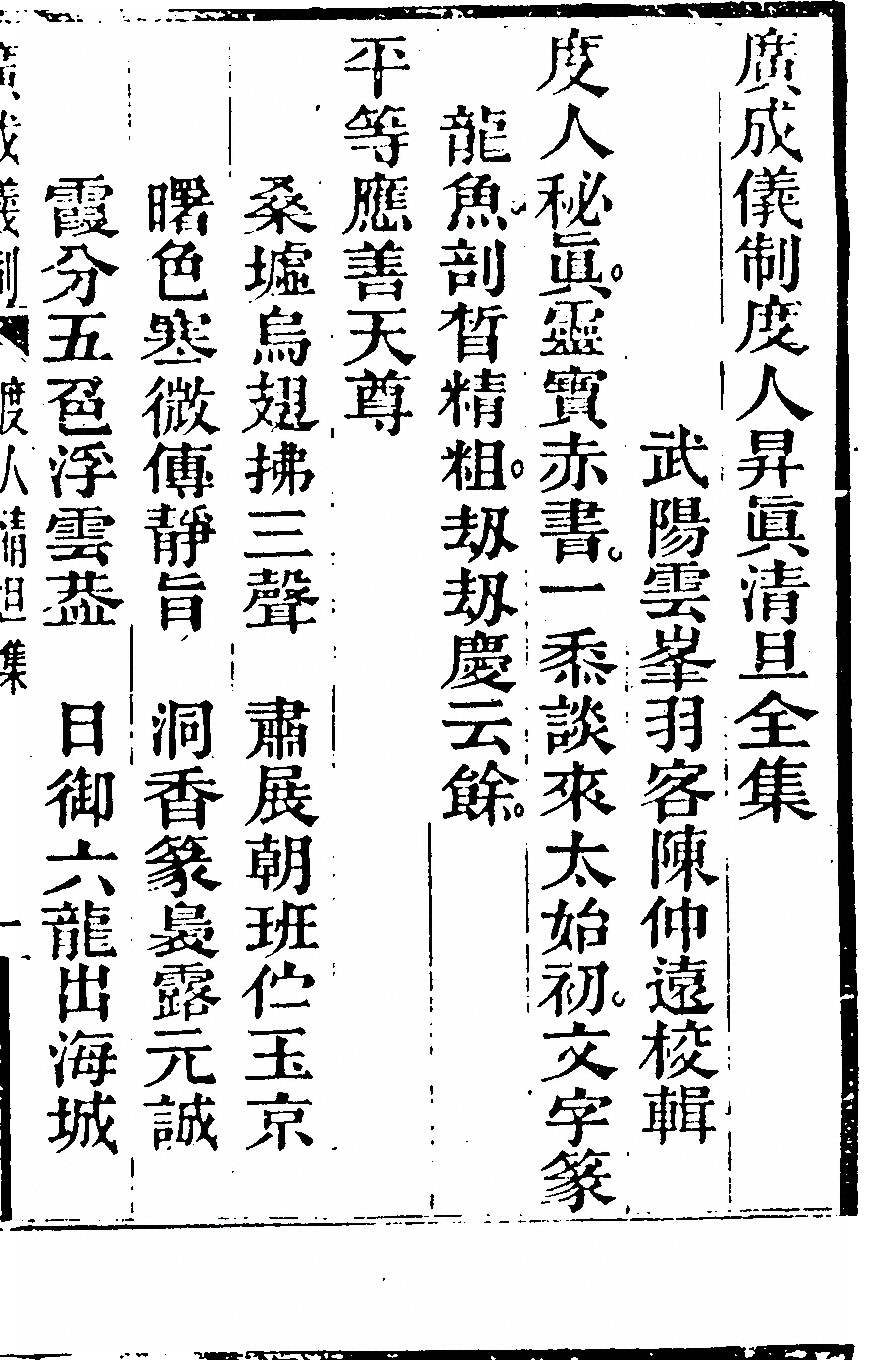 廣成儀制度人昇眞清旦全集
武陽雲峯羽客陳仲遠校輯
度人秘眞。靈寶赤書。一炁談來太始初。文字篆
龍魚。剖晢精粗。刼刼慶云餘。
平等應善天尊
桑墟烏翅拂三聲　肅展朝班伫玉京
曙色寒微傳靜旨　洞香篆裊露元誠
霞分五色浮雲葢　日御六龍出海城
廣成儀制　度人清旦集　一